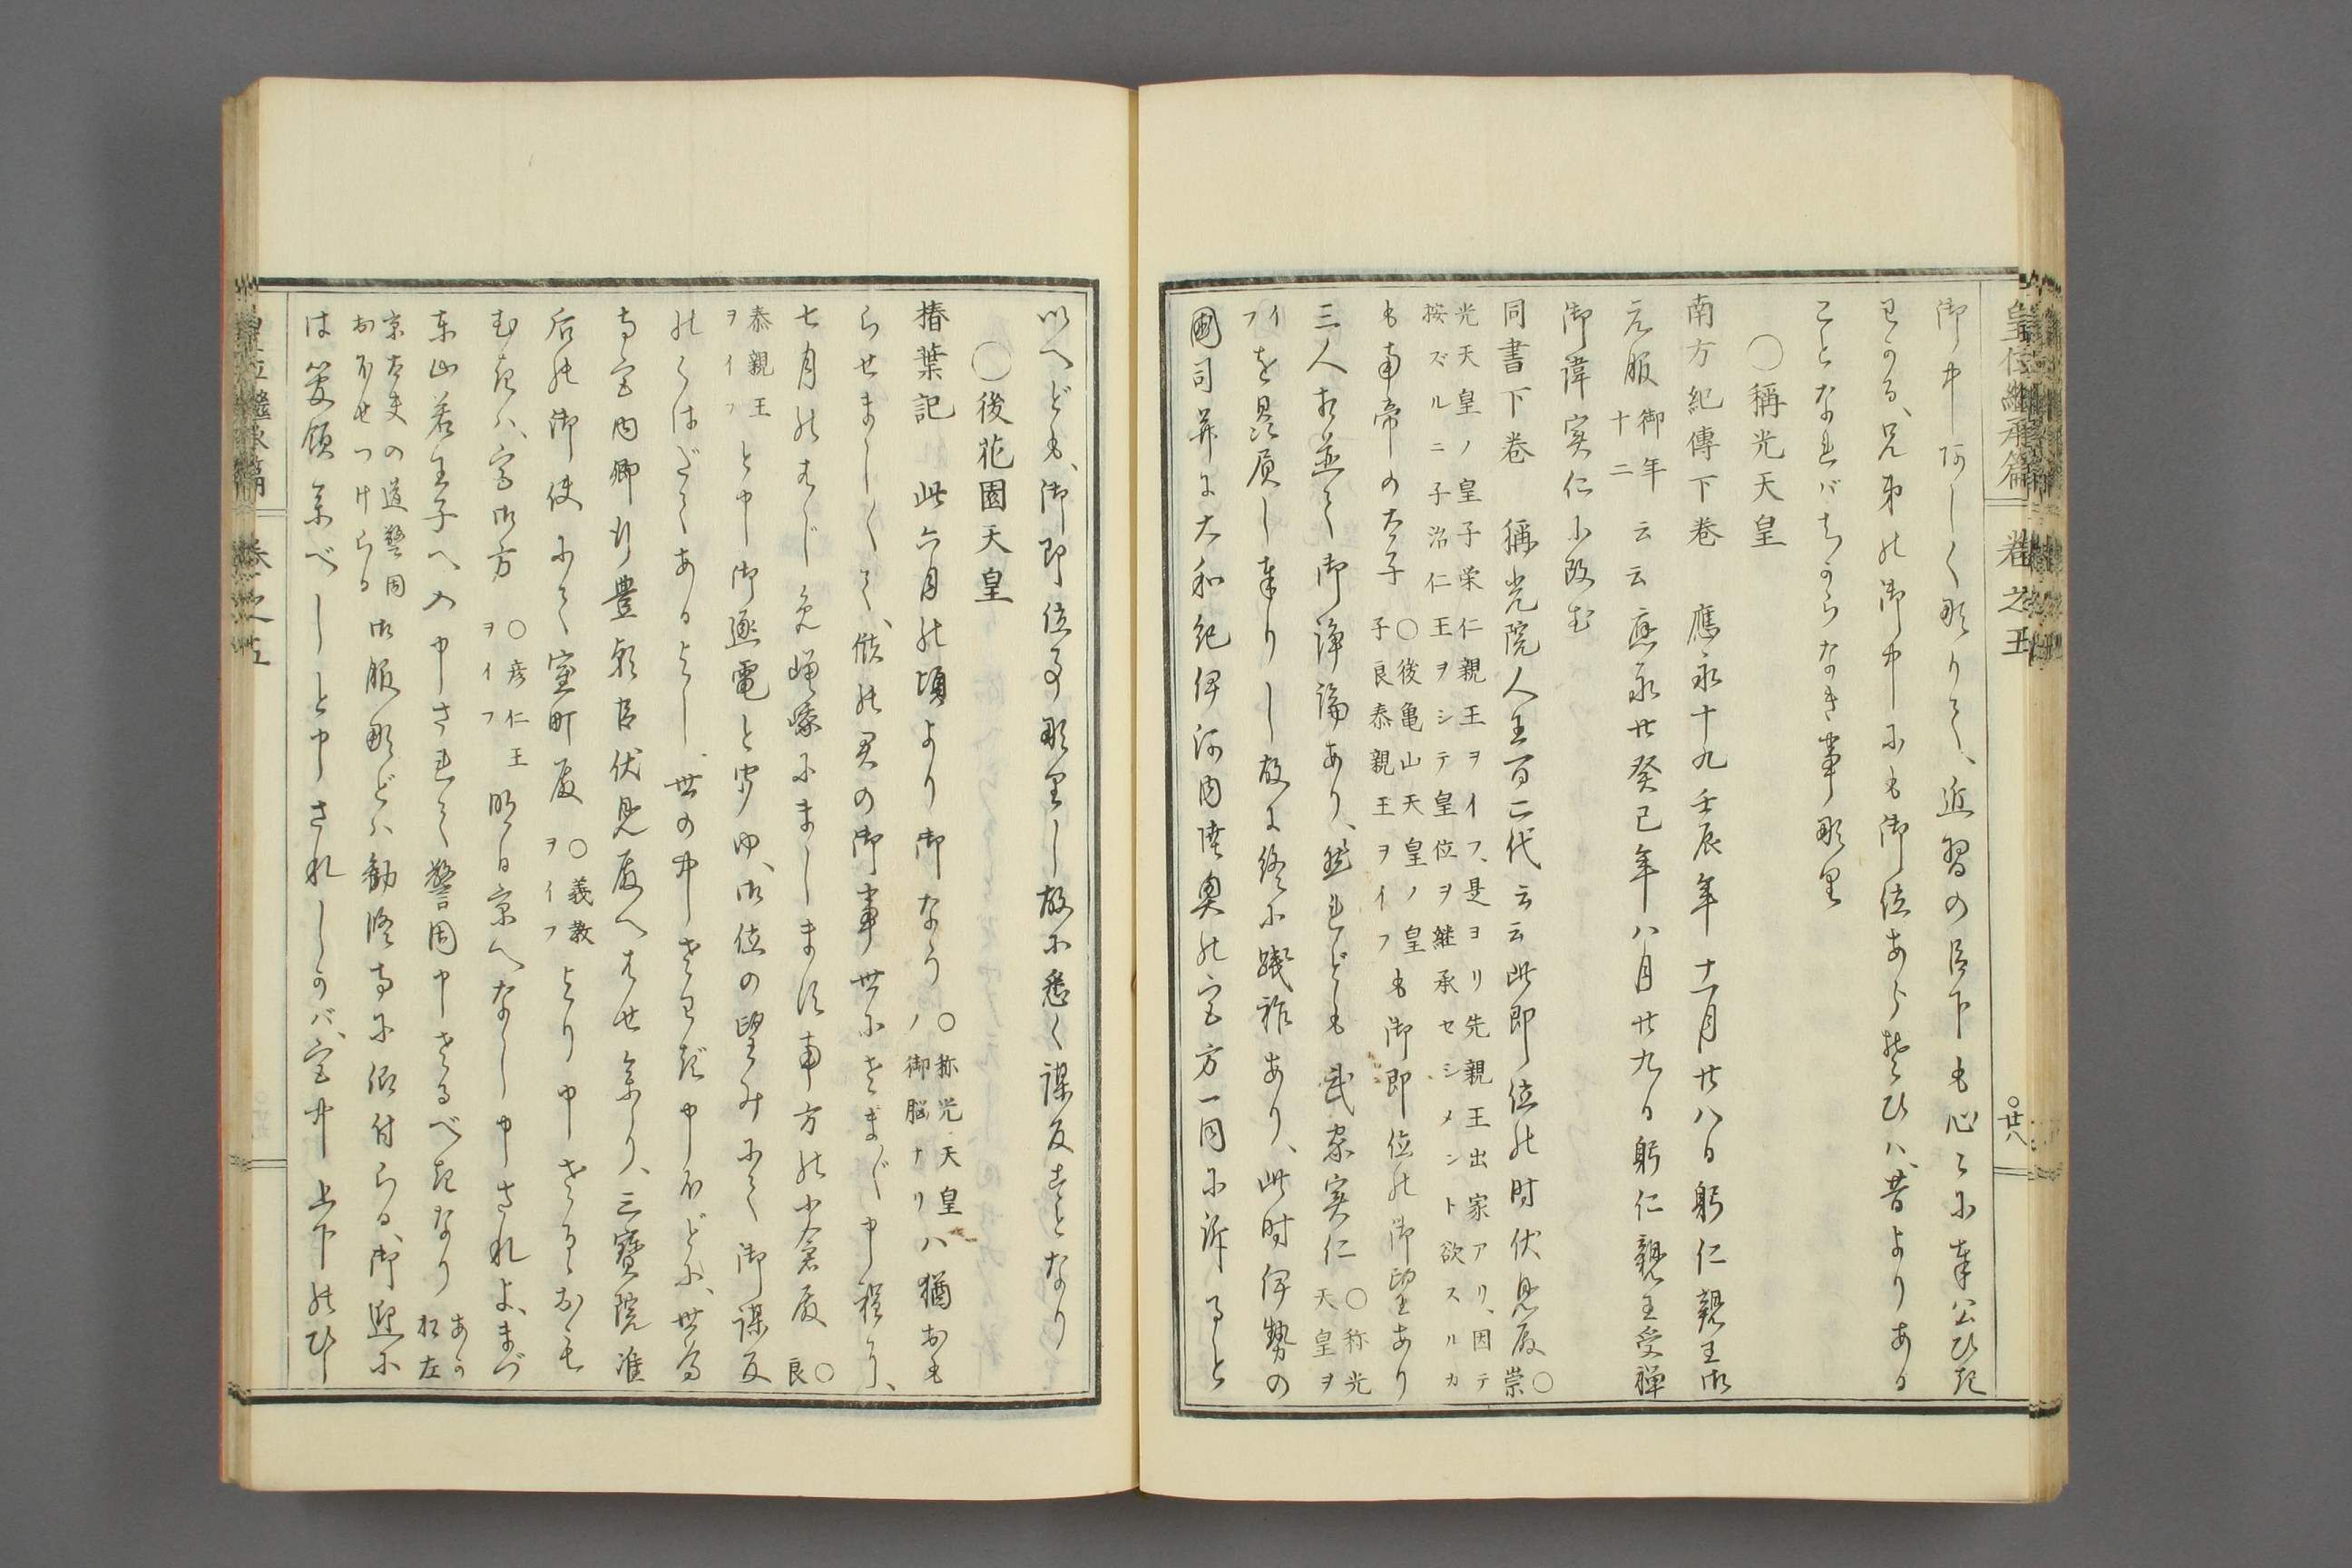 皇位繼承篇 卷之五 ○廿八
御中阿しく成りて、近習の臣下も心々に奉公ひき
わかる、兄弟の御中にも御位あらそひハ、昔よりある
ことなれバちからなき事なり
○稱光天皇
南方紀傳下卷 應永十九壬辰年十一月廿八日躬仁親王御
元服 御年十二 云云應永廿癸巳年八月廿九日躬仁親王受禅
御諱実仁に改む
同書下巻 稱光院人王百二代云云此即位の时伏見殿 ○崇
光天皇ノ皇子栄仁親王ヲイフ、是ヨリ先親王出家アリ、因テ
按ズルニ子治仁王ヲシテ皇位ヲ継承セシメント欲スルカ
も南帝の太子 ○後亀山天皇ノ皇子良泰親王ヲイフ も御即位の御望あり
三人相並て御諍論あり、然れども武家実仁 ○称光天皇ヲ
イフ を贔屓し奉りし故に終に踐祚あり、此时伊勢の
國司并に大和紀伊河内陸奥の宮方一同に訴ると
いへども、御即位事成りし故に悉く謀反すとなり
○後花園天皇
椿葉記 此六月の頃より御なう ○称光天皇ノ御脳ナリ ハ猶おも
らせましくて、儲の君の御事世にさまざま申程に、
七月のはじめ嵯峨にまします南方の小倉殿 ○良
泰親王ヲイフ と申御逐電と聞ゆ、御位の望みにて御謀反
のくはだてあるよし、世の中さわぎ申ほどに、世尊
寺宮内卿行豊朝臣伏見殿へはせ参り、三寶院准
后の御使にて室町殿 ○義教ヲイフ より申さるゝおもむ
むきハ、宮御方 ○彦仁王ヲイフ 明日京へなし申されよ、まづ
東山若王子へ入申されて警固申さるべきなり あか松左
京大夫の道警固おほせつけらる 御服などハ勧修寺に仰付らる、御迎に
は管領参べしと申されしかバ、宮中上下のひし
皇位繼承篇 卷之五